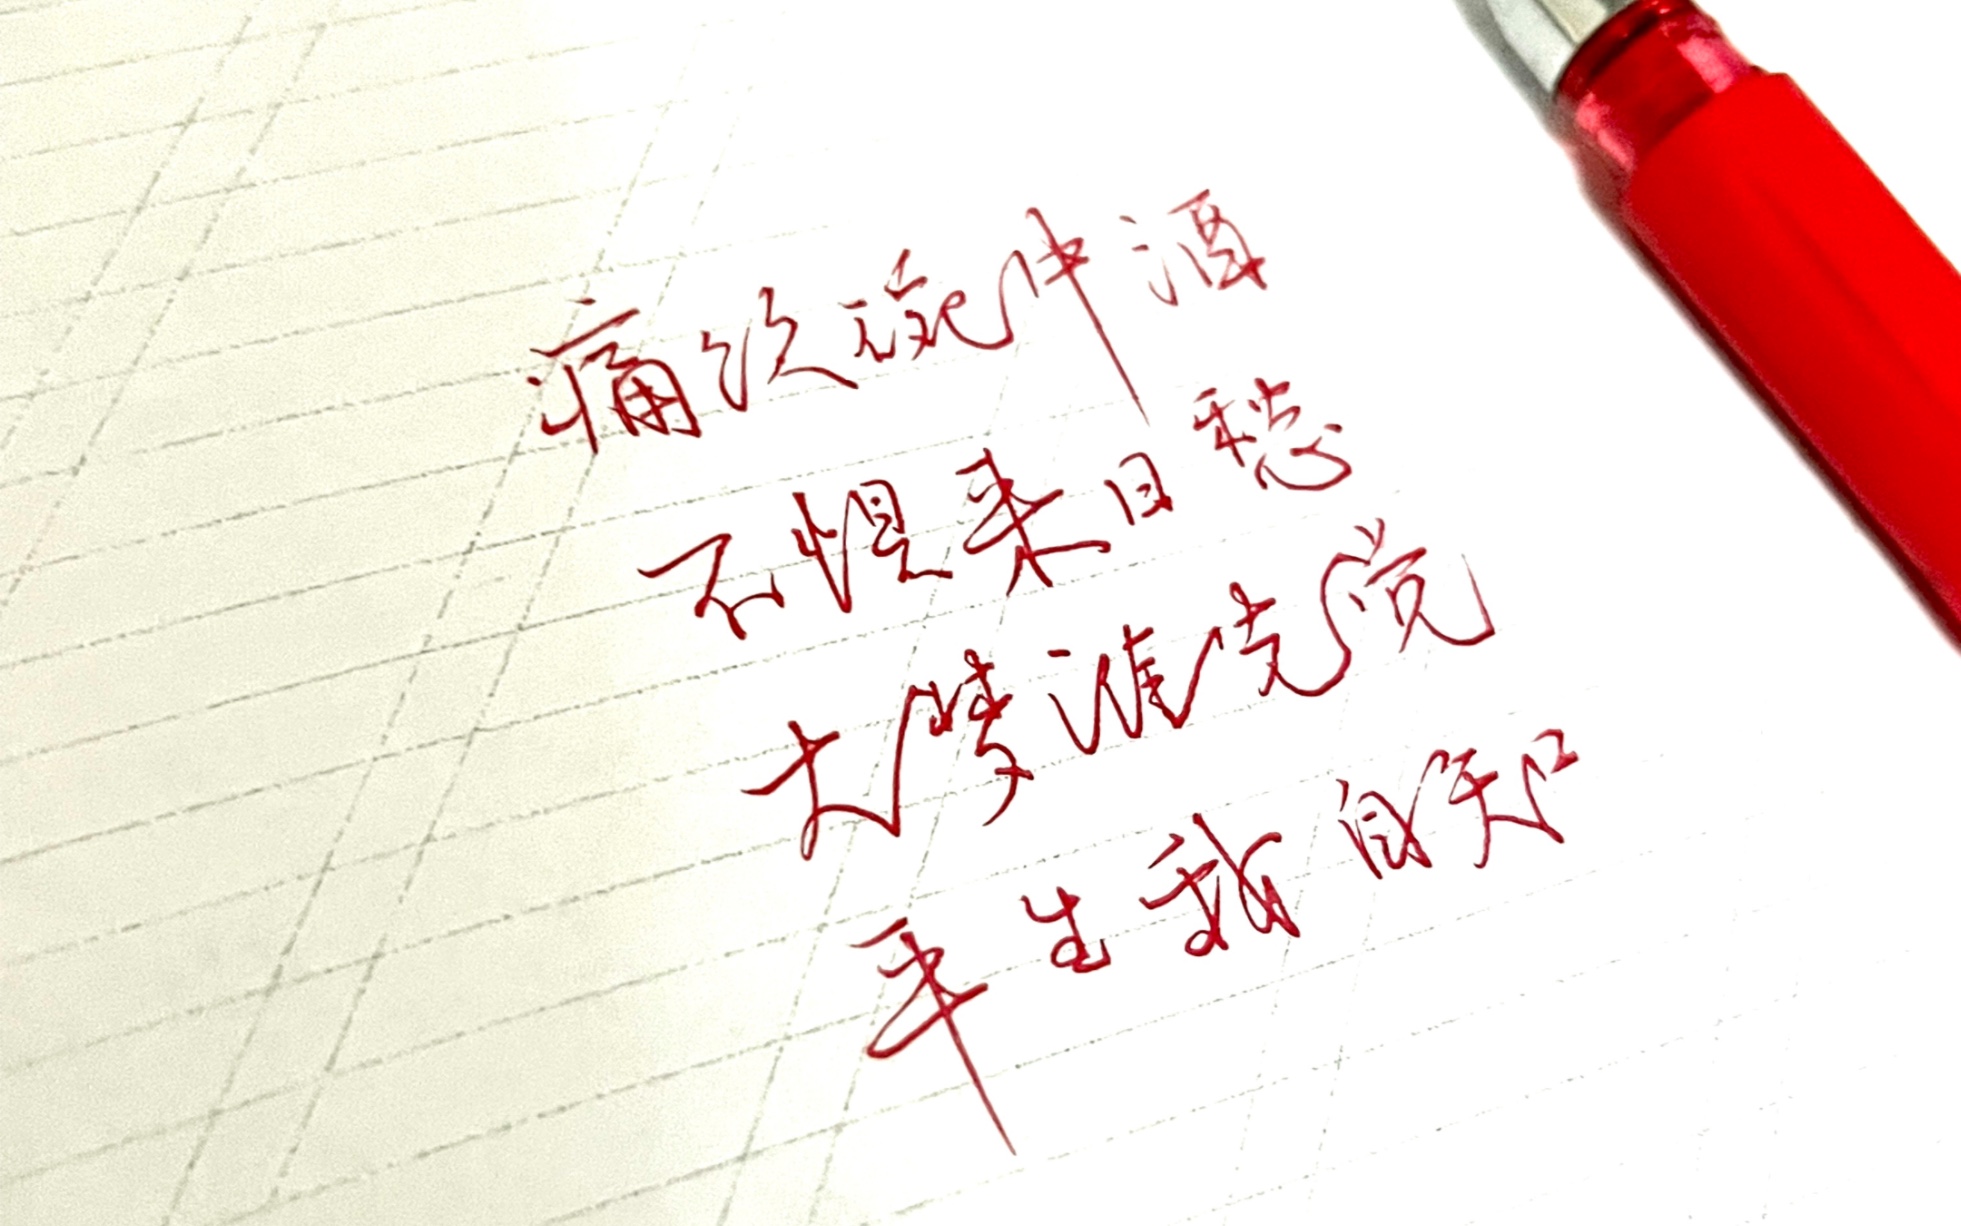 痛饮碗中酒
不惧来日愁
大梦谁先觉
平生我自知